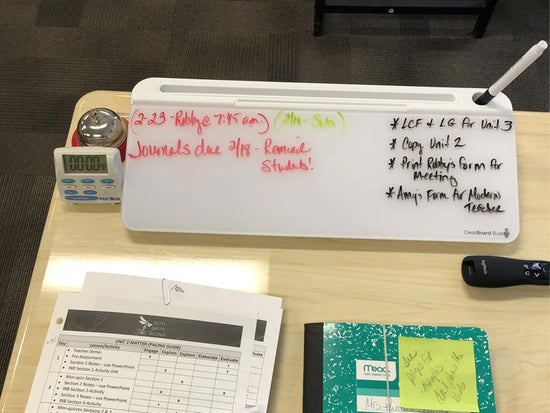 (2-23-Robby @ 7:45 am)
(2/19-Subs)
Journals due 2/18 - Remind
Students!
* LCF + LG for Unit 3
* Copy Unit 2
* Print Robby's Form for
Meeting
* Amy's Form for Modern
Teacher
DeskBoard Buddy
00:00
WEST BEND
NITTY
GRITTY
SCIENCE
UNIT 2-MATTER (PACING GUIDE)
Day Lesson/Activity Engage Explain Explore Elaborate Evaluate
1 Teacher Demo x
Pre-Assessment x
Section 1 Notes - use PowerPoint x
INB Section 1-Activity-HW x
2 Mini-quiz Section 1 x
Section 2 Notes - use PowerPoint x
INB Section 2-Activity x
Section 3 Notes - use PowerPoint x
INB Section 3-Activity x
Mini-quizzes Sections 2 & 3
Mead